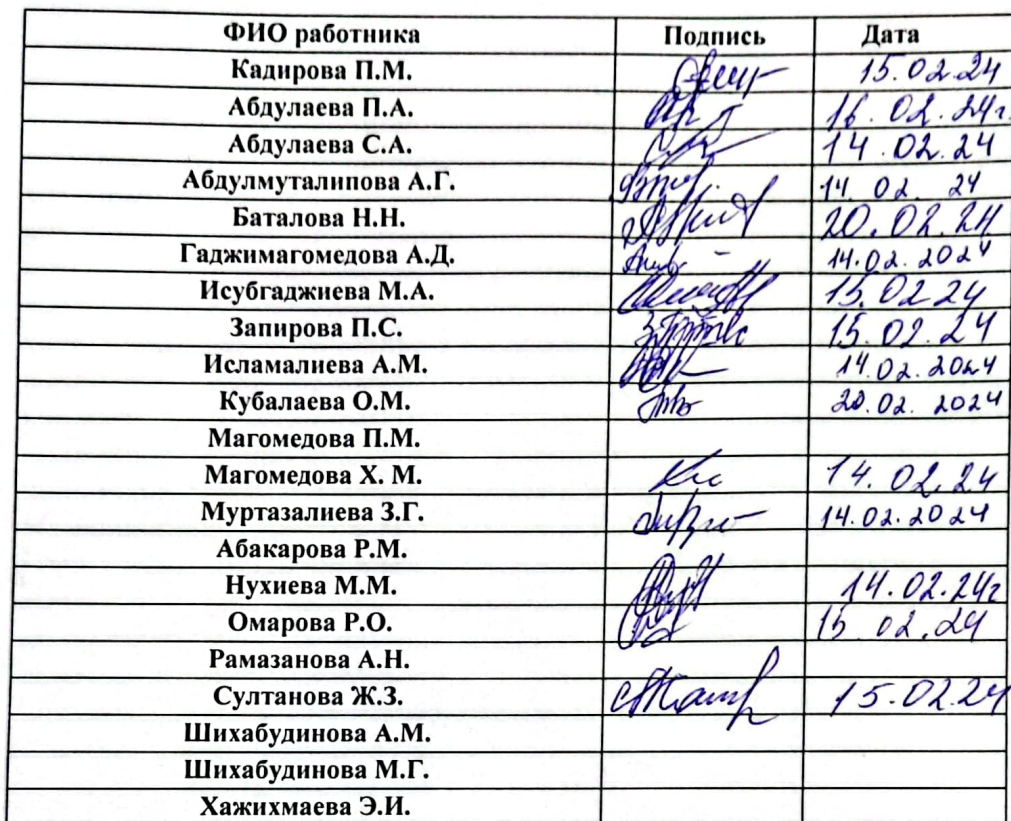 ФИО работника Подпись Дата
Кадирова П.М. 15.02.24
Абдулаева П.А. 16.02.24г.
Абдулаева С.А. 14.02.24
Абдулмуталипова А.Г. 14.02.24
Баталова Н.Н. 20.02.24
Гаджимагомедова А.Д. 14.02.2024
Исубгаджиева М.А. 15.02.24
Запирова П.С. 15.02.24
Исламалиева А.М. 14.02.2024
Кубалаева О.М. 20.02.2024
Магомедова П.М.
Магомедова Х. М. 14.02.24
Муртазалиева З.Г. 14.02.2024
Абакарова Р.М.
Нухиева М.М. 14.02.24г
Омарова Р.О. 15.02.24
Рамазанова А.Н.
Султанова Ж.З. 15.02.24
Шихабудинова А.М.
Шихабудинова М.Г.
Хажихмаева Э.И.